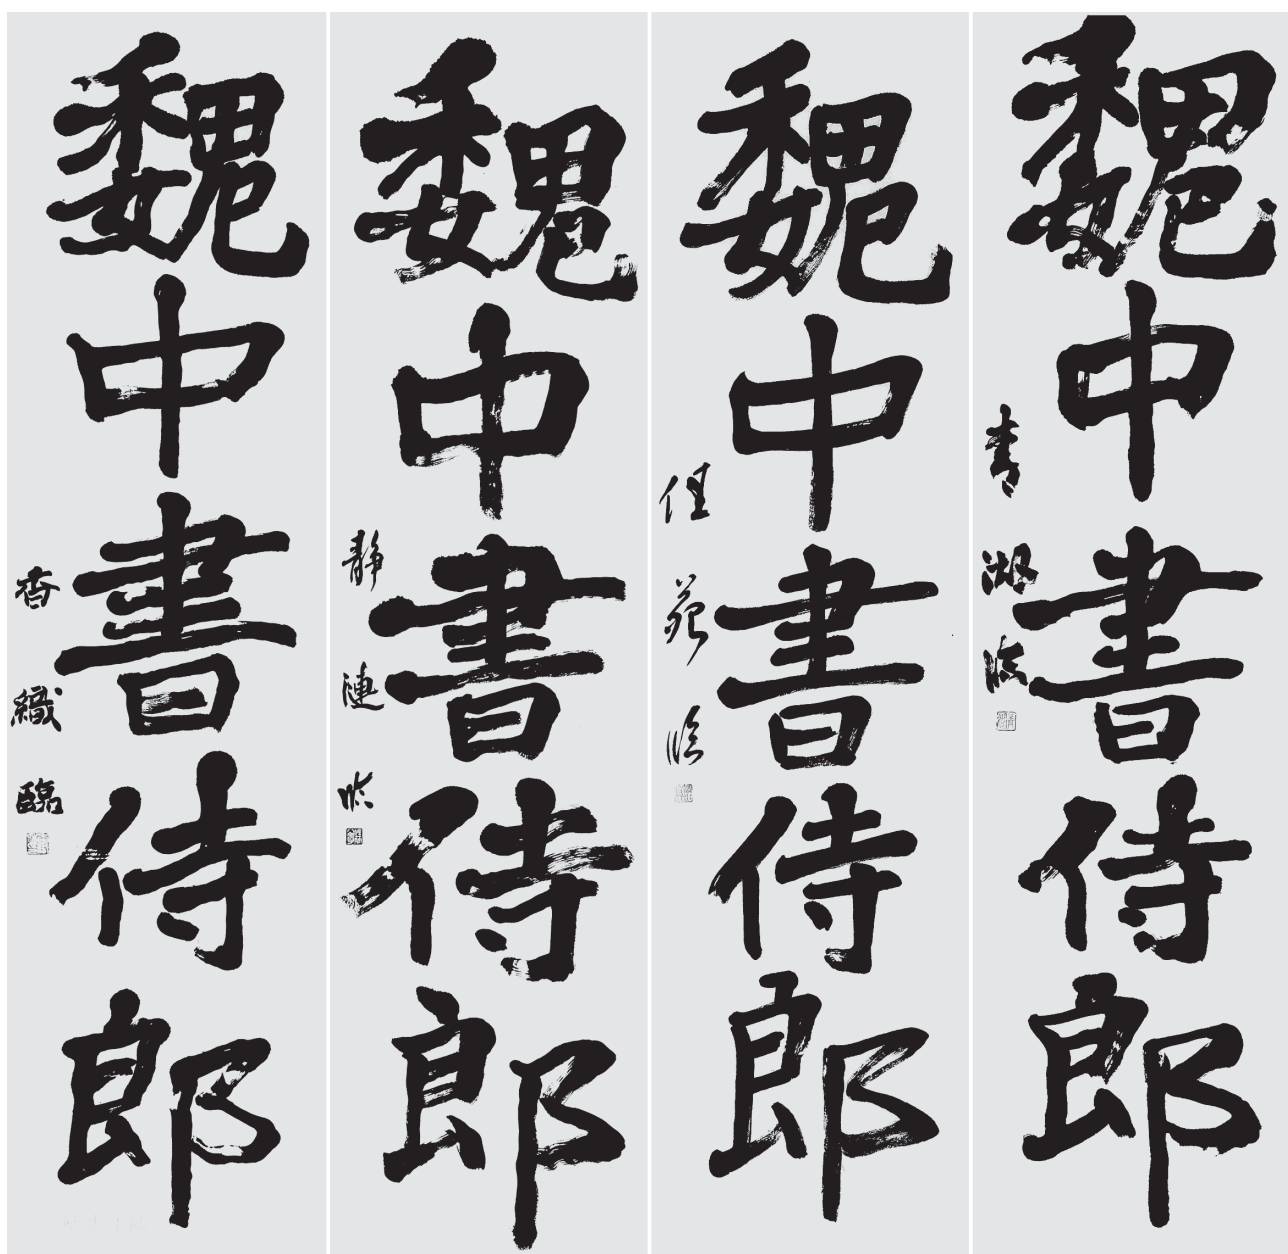 魏中書侍郎
青湖臨
魏中書侍郎
任苑臨
魏中書侍郎
静漣臨
魏中書侍郎
香織臨